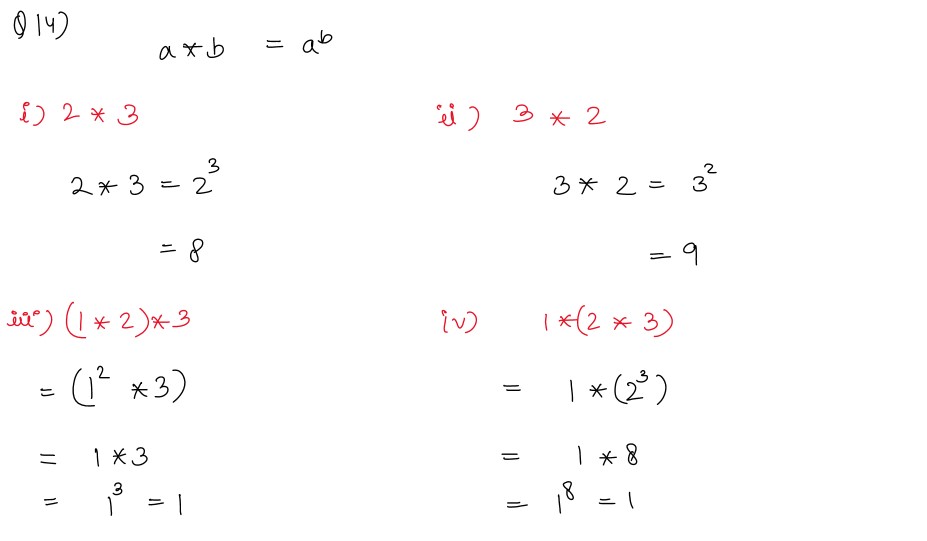 Q 14)
a * b = a^b
i) 2 * 3
2 * 3 = 2^3
= 8
ii) 3 * 2
3 * 2 = 3^2
= 9
iii) (1 * 2) * 3
= (1^2 * 3)
= 1 * 3
= 1^3 = 1
iv) 1 * (2 * 3)
= 1 * (2^3)
= 1 * 8
= 1^8 = 1